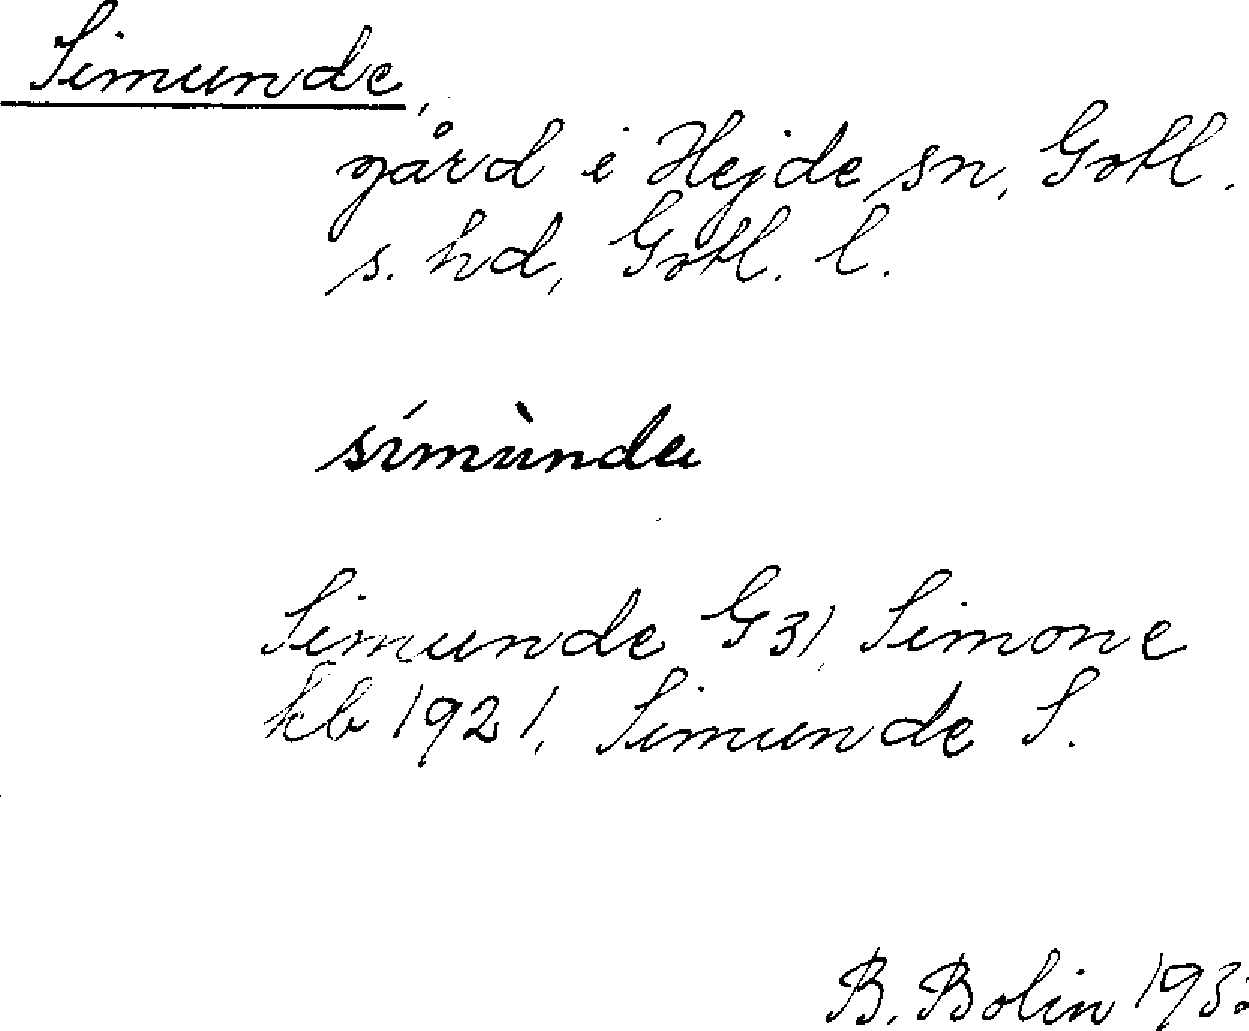 Simunde,
gård i Hejde sn, Gotl.
s. hd, Gotl. l.
símùnda
Simunde G31, Simone
kb 1921, Simunde S.
B. Bolin